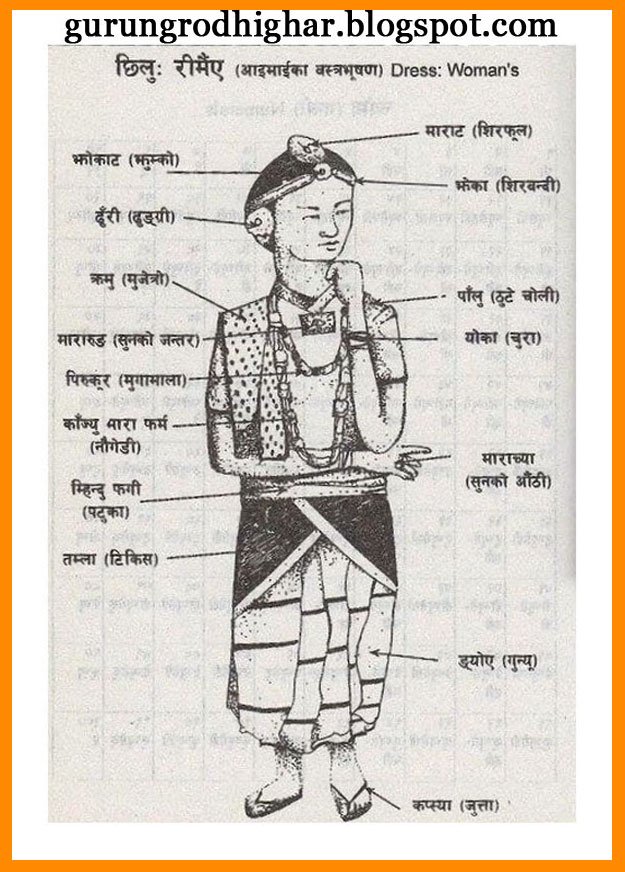 gurungrodhighar.blogspot.com
छिलुः रीमैंए (आइमाईका वस्त्रभूषण) Dress: Woman's
माराट (शिरफूल)
झोकाट (झुम्को)
झंका (शिरबन्दी)
ढुँरी (ढुङ्ग्री)
क्रमु (मुजेत्रो)
पाँलु (ठुटे चोली)
मारारुङ (सुनको जन्तर)
योका (चुरा)
पिरुकर (मुगामाला)
काँज्यु मारा फर्म
(नौगेडी)
माराच्या
(सुनको औंठी)
म्हिन्दु फगी
(पटुका)
तम्ला (टिकिस)
ड्योए (गुन्यू)
कप्स्या (जुत्ता)